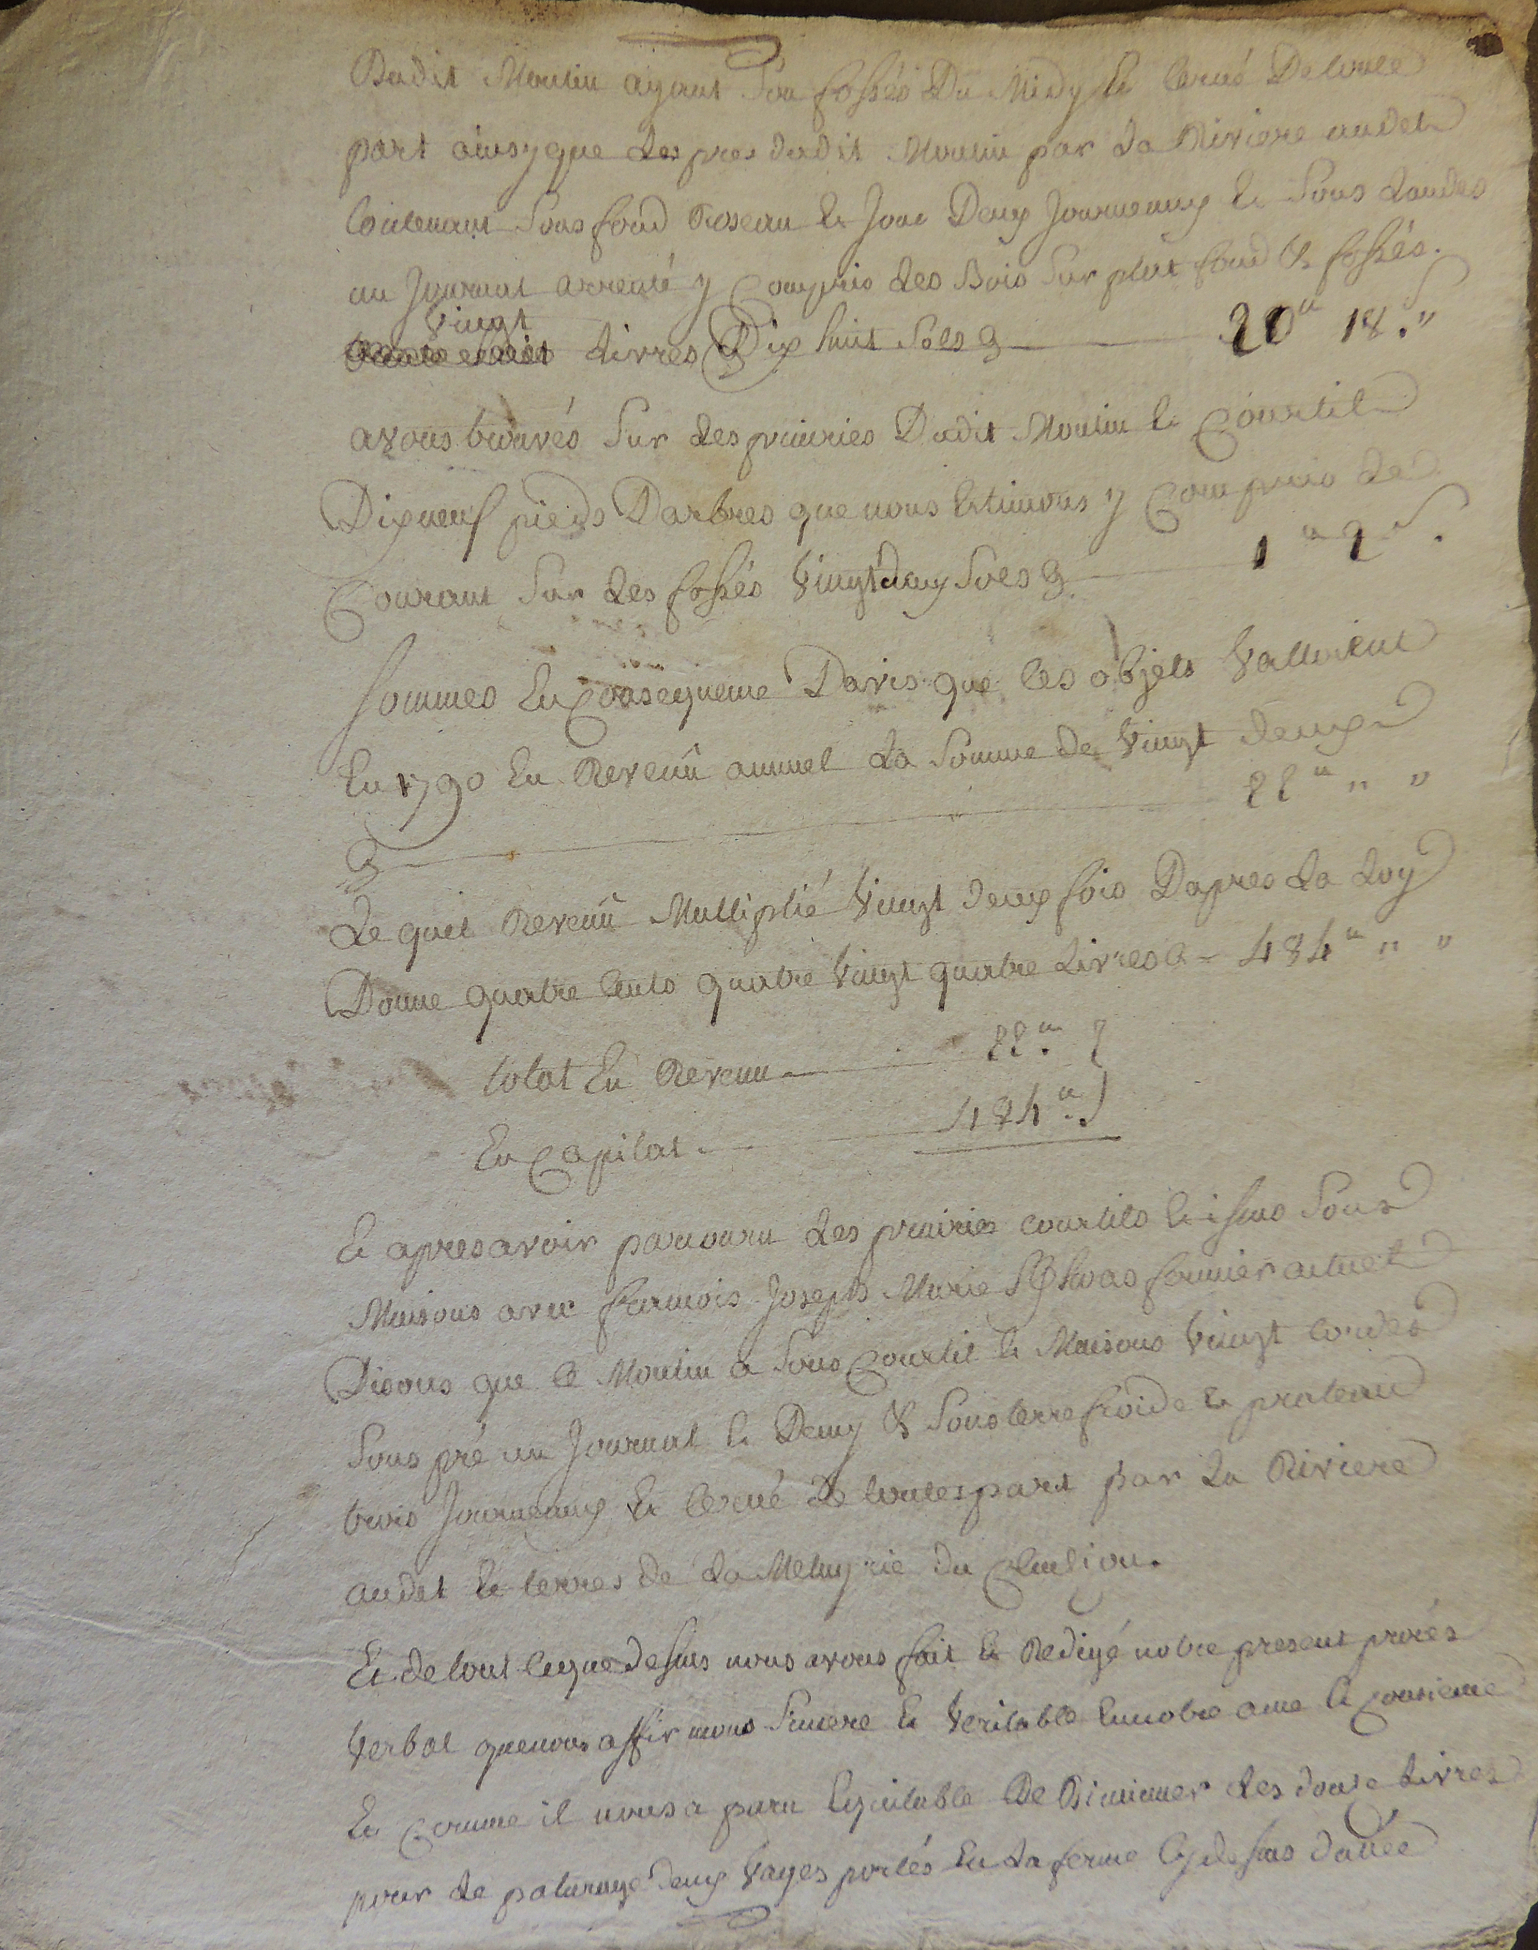 Dudit Moulin ayant son fossés Du Midy et cerné De toute
part ainsy que les pres dudit Moulin par la Riviere audet
Contenant sous fond Roseau et Jonc Deux Journeaux et sous landes
un Journal arrenté y Compris les Bois sur plat fond & fossés.
vingt
livres Dix huit sols 20# 18.s"
avons trouvés sur les prairies Dudit Moulin et Courtil
Dixneuf pieds Darbres que nous Estimons y Compris le
Courant sur les fossés vingtdeux sols 1# 2s.
sommes En Consequence Davis que les objets valloient
En 1790 En Revenû annuel la somme de vingt deux
22# " "
Le quel Revenû Multiplié vingt deux fois Dapres la Loy
Donne quatre Cents quatre vingt quatre livres 484# " "
total En Revenu 22#.
En Capital 484#.
Et apres avoir parcouru les prairies courtils et issus sous
Maisons avec francois Joseph Marie fermier actuel
Disons que le Moulin a sous Courtil et Maisons vingt cordes
sous pré un Journal et Demy & sous terre froide et prateau
trois Journeaux Et Cerné de toutes part par la Riviere
audet et terres de la Metayrie du
Et de tout ceque dessus nous avons fait et Redigé notre present procés
verbal quenous affirmons sincere et veritable En notre ame et consience
Et comme il nous a paru Equitable De Diminuer les douze livres
pour le paturage deux vages portés En la ferme cy dessus dattée